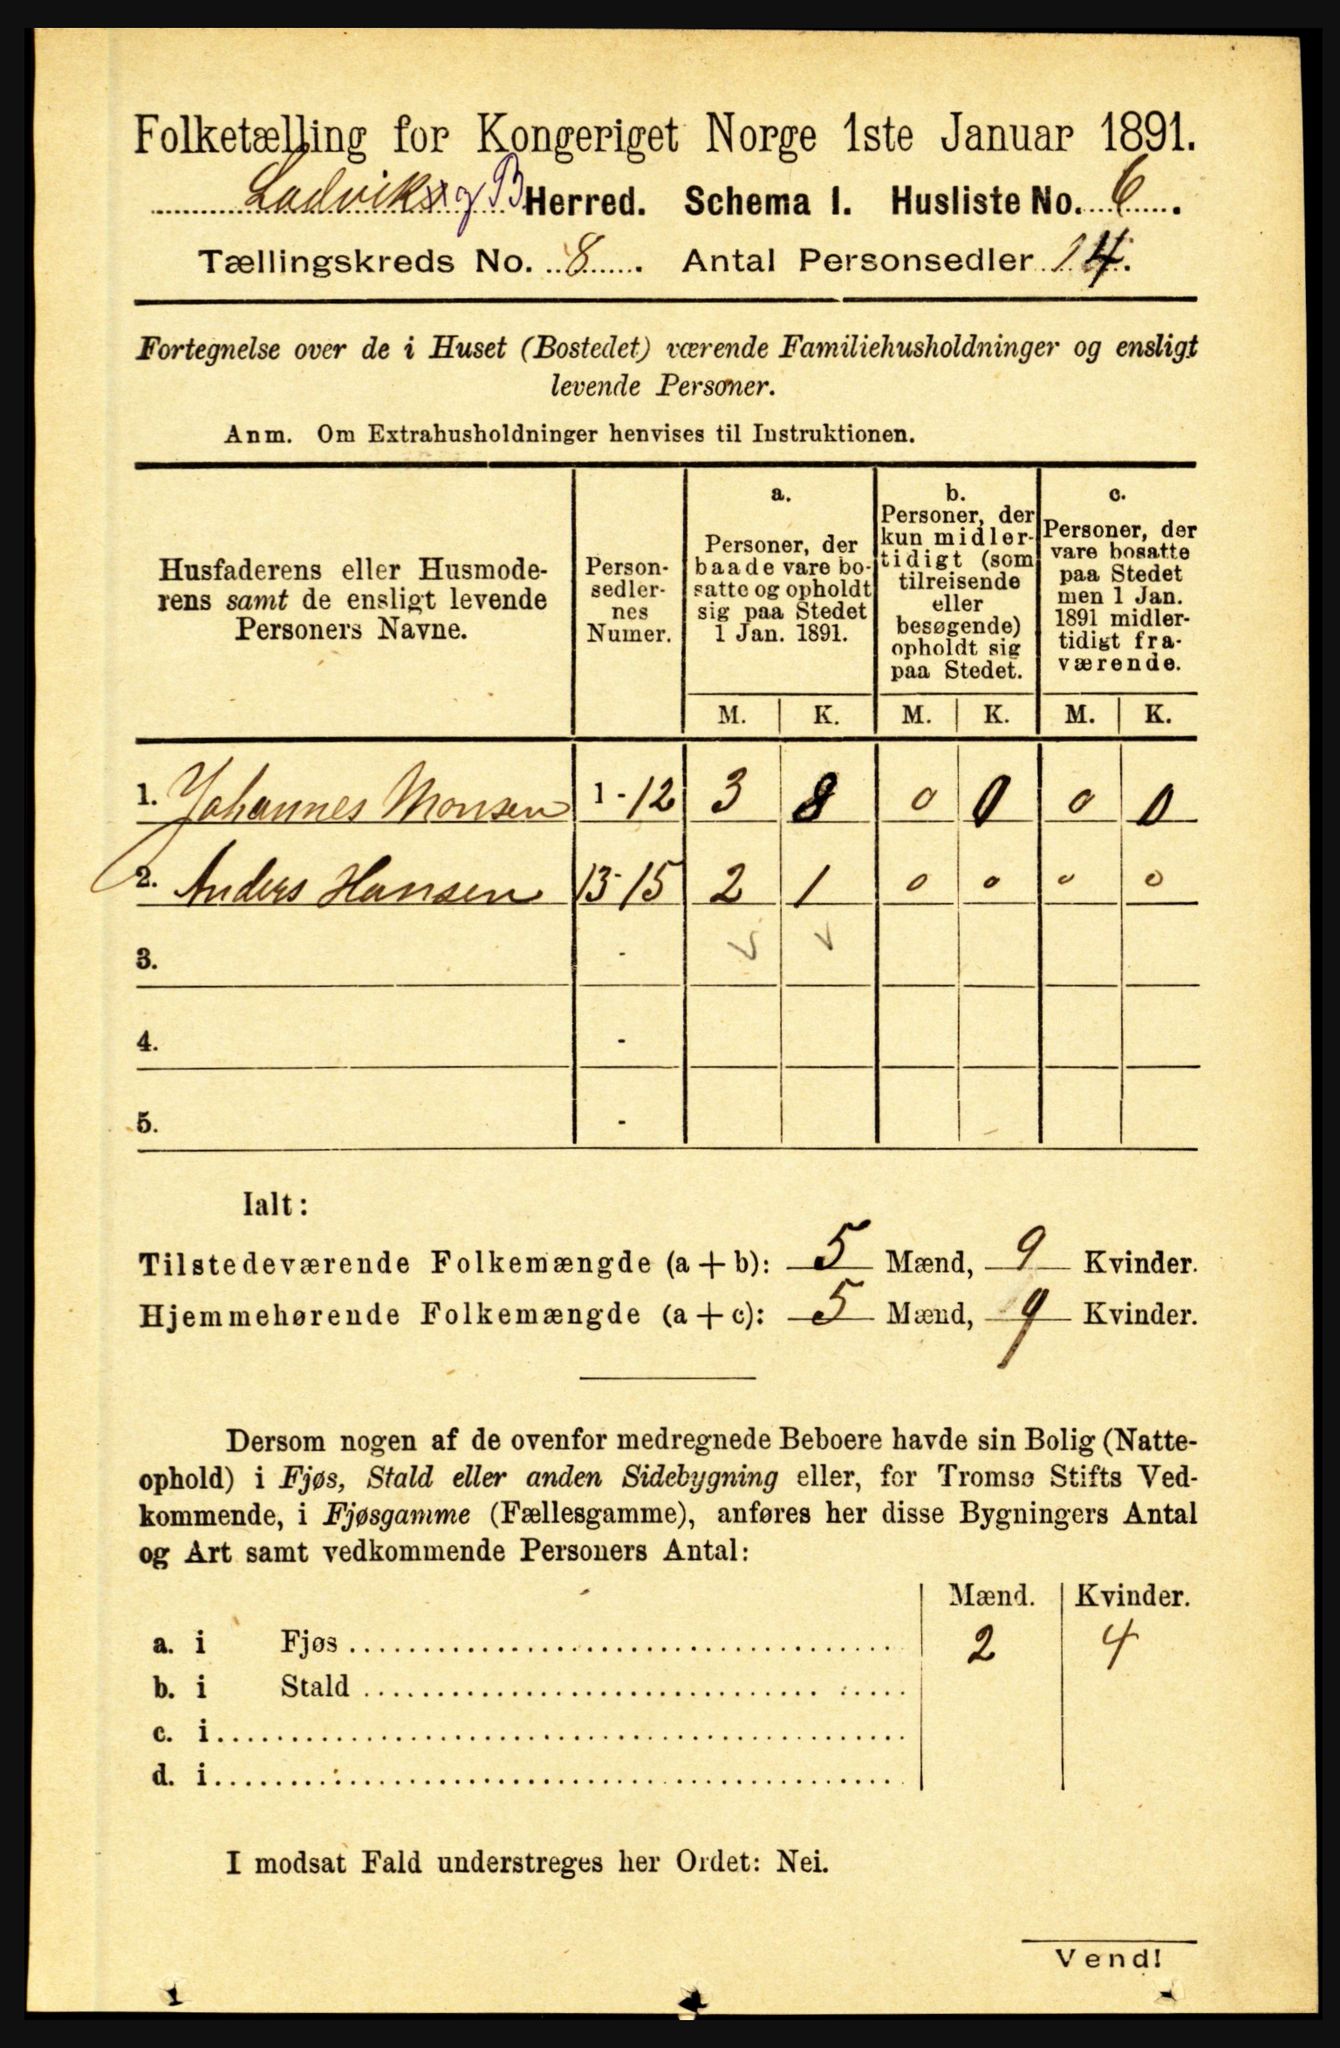 Folketælling for Kongeriget Norge 1ste Januar 1891.
Ladvik og B Herred. Schema I. Husliste No. 6.
Tællingskreds No. 8. Antal Personsedler 14.
Fortegnelse over de i Huset (Bostedet) værende Familiehusholdninger og ensligt
levende Personer.
Anm. Om Extrahusholdninger henvises til Instruktionen.
Husfaderens eller Husmode-
rens samt de ensligt levende
Personers Navne.
Person-
sedler-
nes
Numer.
a.
Personer, der
baade vare bo-
satte og opholdt
sig paa Stedet
1 Jan. 1891.
b.
Personer, der
kun midler-
tidigt (som
tilreisende
eller
besøgende)
opholdt sig
paa Stedet.
c.
Personer, der
vare bosatte
paa Stedet
men 1 Jan.
1891 midler-
tidigt fra-
værende.
M. K. M. K. M. K.
1. Johannes Monsen 1-12 3 8 0 0 0 0
2. Anders Hansen 13-15 2 1 0 0 0 0
3. -
4. -
5. -
Ialt:
Tilstedeværende Folkemængde (a + b): 5 Mænd, 9 Kvinder.
Hjemmehørende Folkemængde (a + c): 5 Mænd, 9 Kvinder.
Dersom nogen af de ovenfor medregnede Beboere havde sin Bolig (Natte-
ophold) i Fjøs, Stald eller anden Sidebygning eller, for Tromsø Stifts Ved-
kommende, i Fjøsgamme (Fællesgamme), anføres her disse Bygningers Antal
og Art samt vedkommende Personers Antal:
Mænd. Kvinder.
a. i Fjøs 2 4
b. i Stald
c. i
d. i
I modsat Fald understreges her Ordet: Nei.
Vend!